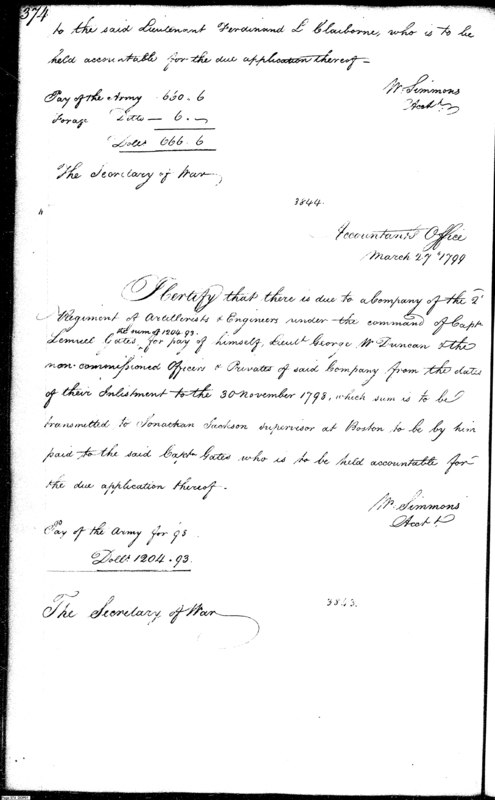 374
to the said Lieutenant Ferdinand L Claiborne, who is to be
held accountable for the due application thereof.
Wm Simmons
Acctt.
Pay of the Army 660.6
Forage Ditto — 6.
Dolls 666.6
The Secretary of War
3844.
Accountants Office
March 27th 1799
I Certify that there is due to a Company of the 2d
Regiment of Artillerists & Engineers under the command of Capt
the sum of 1204.93.
Lemuel Gates, for pay of himself, Lieut George W Duncan & the
non-commissioned Officers & Privates of said Company from the dates
of their Inlistment to the 30 November 1798, which sum is to be
transmitted to Jonathan Jackson supervisor at Boston to be by him
paid to the said Capt Gates who is to be held accountable for
the due application thereof.
Wm Simmons
Acctt.
Pay of the Army for 98
Dolls 1204.93.
The Secretary of War
3843.